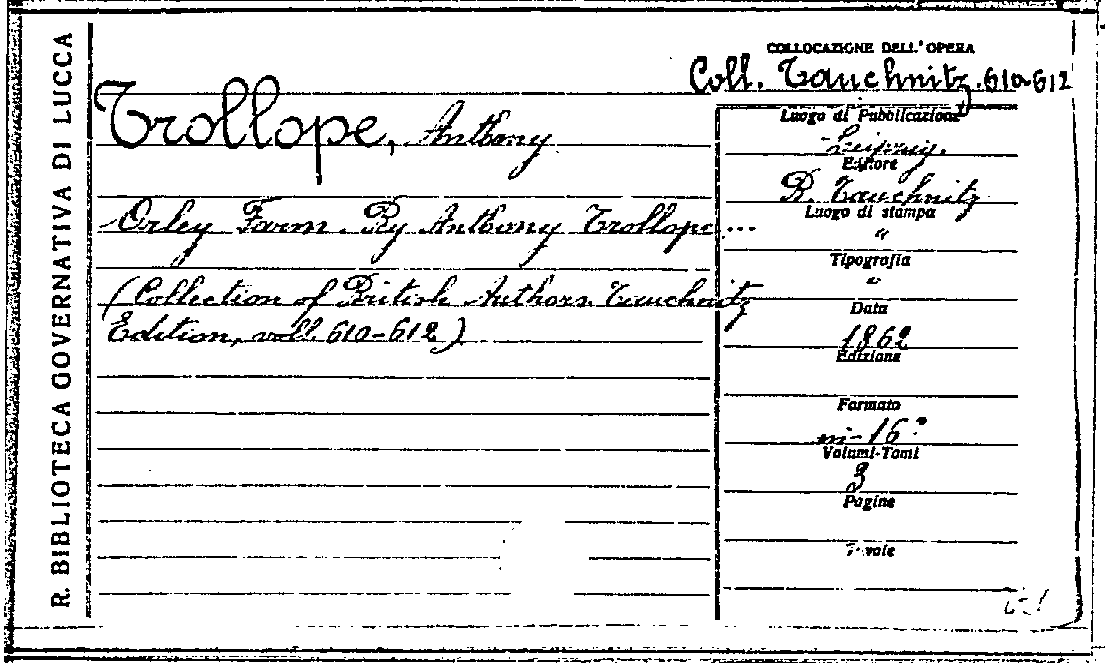 R. BIBLIOTECA GOVERNATIVA DI LUCCA
COLLOCAZIONE DELL'OPERA
Coll. Tauchnitz. 610-612
Trollope, Anthony
Orley Farm. By Anthony Trollope...
(Collection of British Authors Tauchnitz
Edition, voll. 610-612)
Luogo di Pubblicazione
Leipzig.
Editore
B. Tauchnitz
Luogo di stampa
"
Tipografia
"
Data
1862
Edizione
Formato
in-16°
Volumi-Tomi
3
Pagine